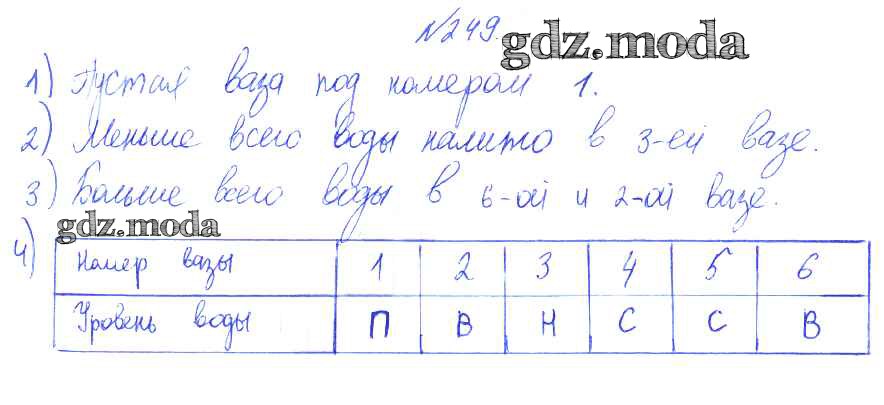 №249.
gdz.moda
1) Пустая ваза под номером 1.
2) Меньше всего воды налито в 3-ей вазе.
3) Больше всего воды в 6-ой и 2-ой вазе.
gdz.moda
4)
Номер вазы 1 2 3 4 5 6
Уровень воды П В Н С С В